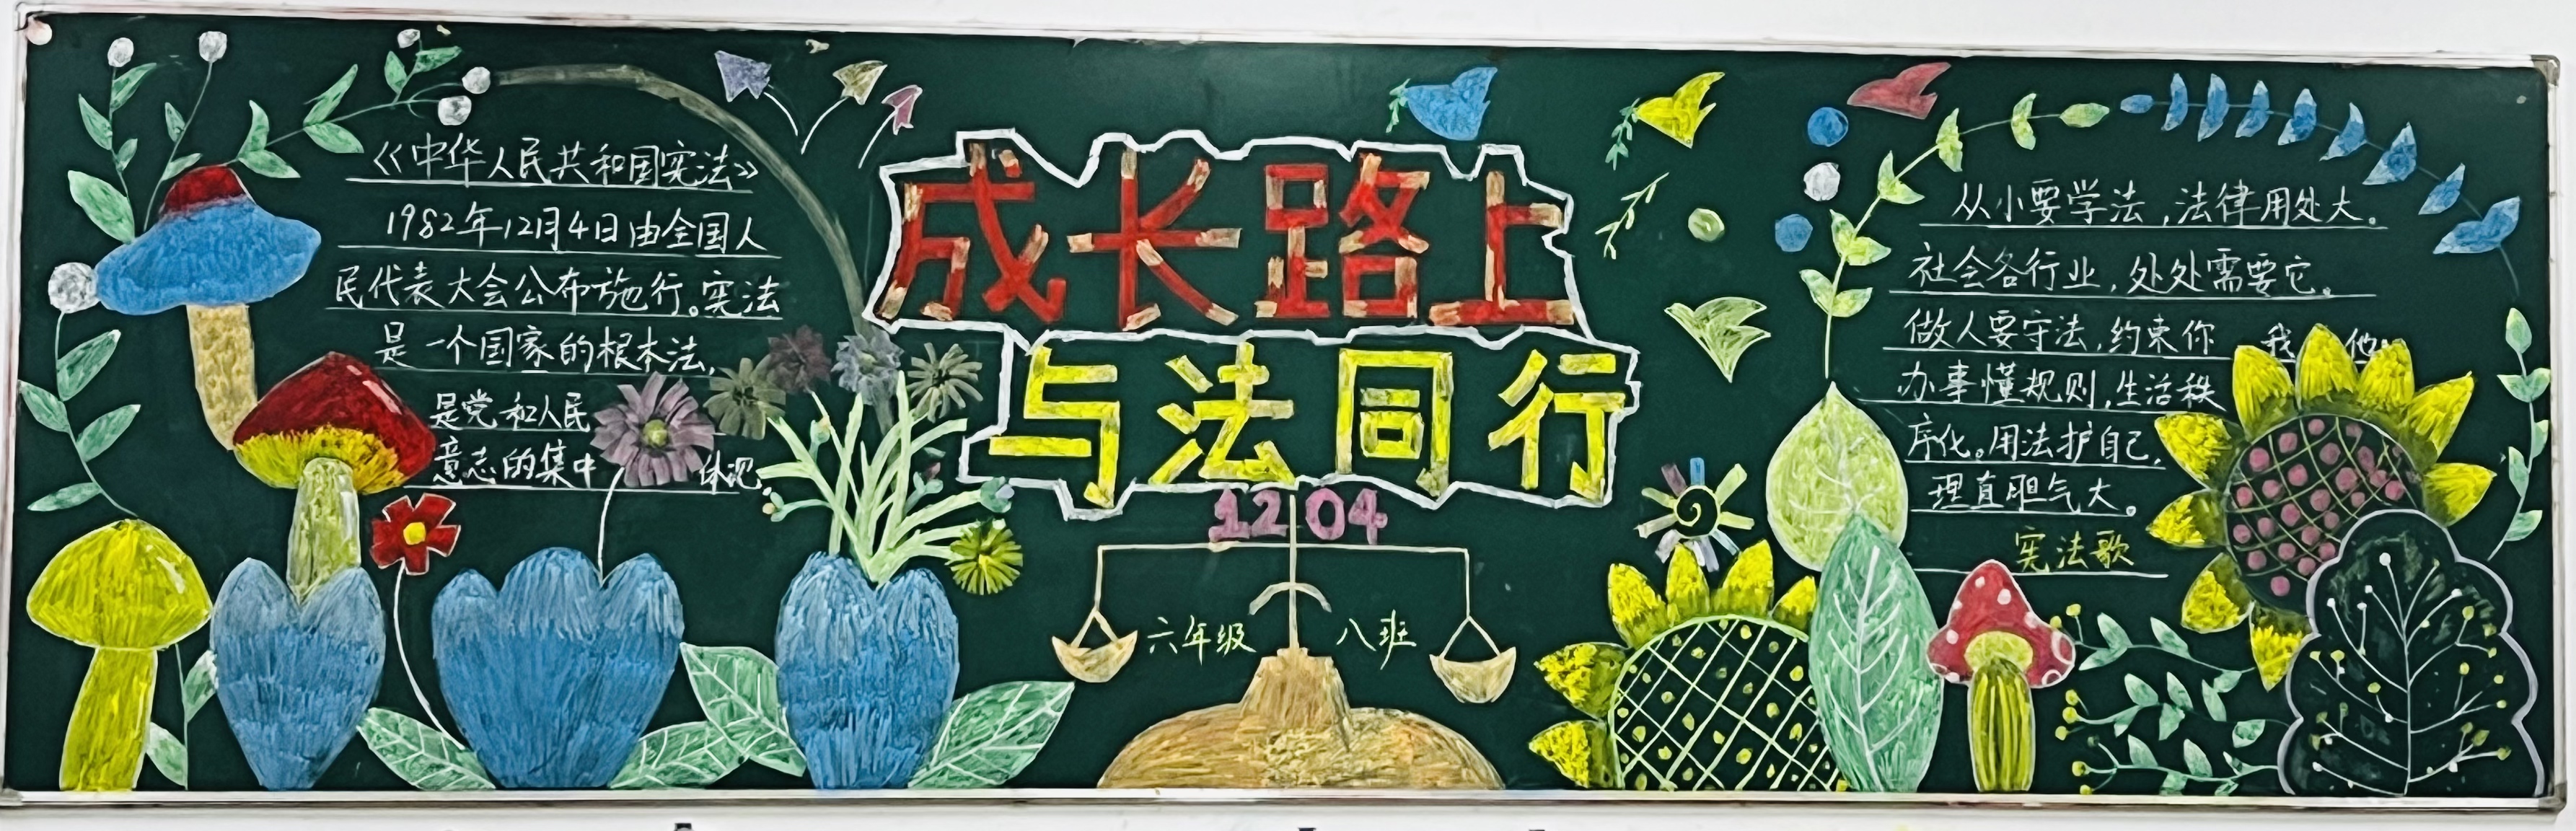 《中华人民共和国宪法》
1982年12月4日由全国人
民代表大会公布施行。宪法
是一个国家的根本法,
是党和人民
意志的集中 体现.
成长路上
与法同行
1204
六年级 八班
从小要学法,法律用处大。
社会各行业,处处需要它。
做人要守法,约束你 我 他。
办事懂规则,生活秩
序化。用法护自己,
理直胆气大。
宪法歌